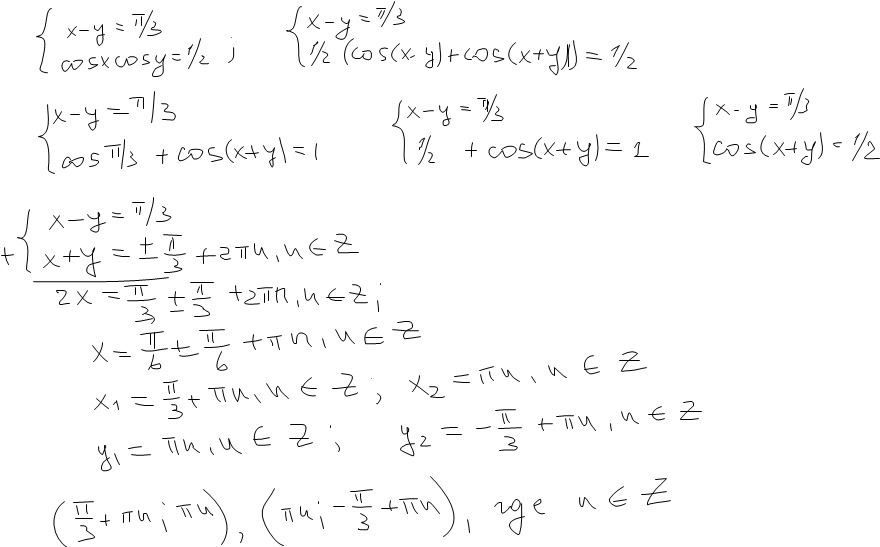 { x-y = π/3    { x-y = π/3
{ cos x cos y = 1/2 ;    { 1/2 (cos(x-y)+cos(x+y)) = 1/2
{ x-y = π/3    { x-y = π/3    { x-y = π/3
{ cos π/3 + cos(x+y) = 1    { 1/2 + cos(x+y) = 1    { cos(x+y) = 1/2
+ { x-y = π/3
{ x+y = ± π/3 + 2πn, n ∈ Z
2x = π/3 ± π/3 + 2πn, n ∈ Z;
x = π/6 ± π/6 + πn, n ∈ Z
x₁ = π/3 + πn, n ∈ Z; x₂ = πn, n ∈ Z
y₁ = πn, n ∈ Z; y₂ = -π/3 + πn, n ∈ Z
(π/3 + πn; πn), (πn; -π/3 + πn), где n ∈ Z